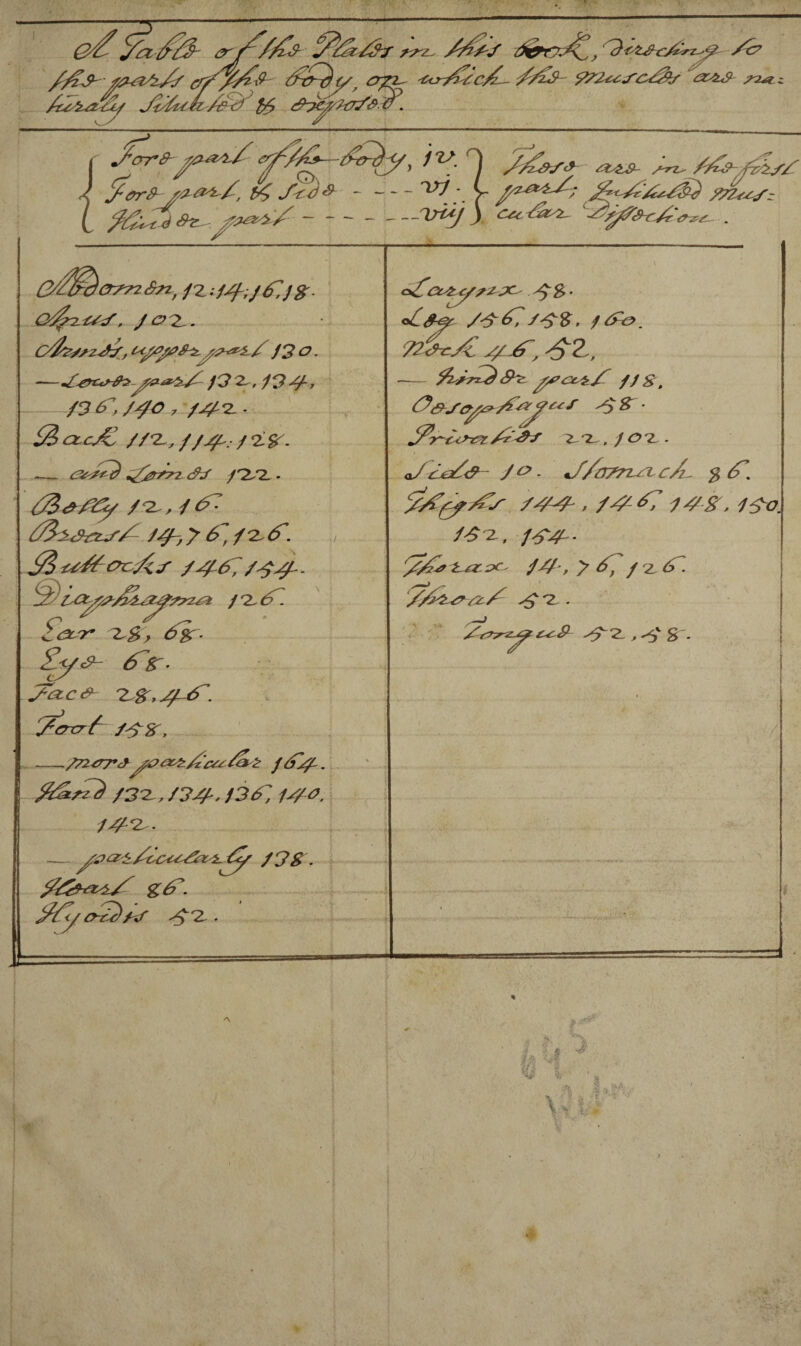 A Table of the Plates in this Book, directing to
the parts of the Body, on which the Muscles are na=
turally situated & exposed.
Fore part of the Body, iv.
Fore part, & Side - - - - vj.
Hinder part - - - - - - viij
These are in the first
part; Intituled Mus=
cular Dissection.
Abdomen, 12:14,:16,18.
Anus, 102.
Armes, upper part 130.
— Lower part 132, 134,
136, 140, 142.
Back, 112, 114: 128.
— and Loins 122.
Belly 12, 16.
Breast 14, 76, 126.
Buttocks 146, 154.
Diaphragma 126.
Ear 28, 68.
Eye 68.
Face 28, 46.
Foot 158,
— more particular 164.
Hand 132, 134, 136, 140,
142.
— particularly 138.
Head 86.
Hyoides 52.
Larynx 58.
Leg 156, 158, 160.
Neck 46, 52,
— Hinder part 118.
Oesophagus 58.
Privities 22, 102.
Side 10. Stomach 86.
Thighs 144, 146, 148, 150,
152, 154.
Thorax 14, 76, 126.
Throat 52.
Tongue 52, 58.
645